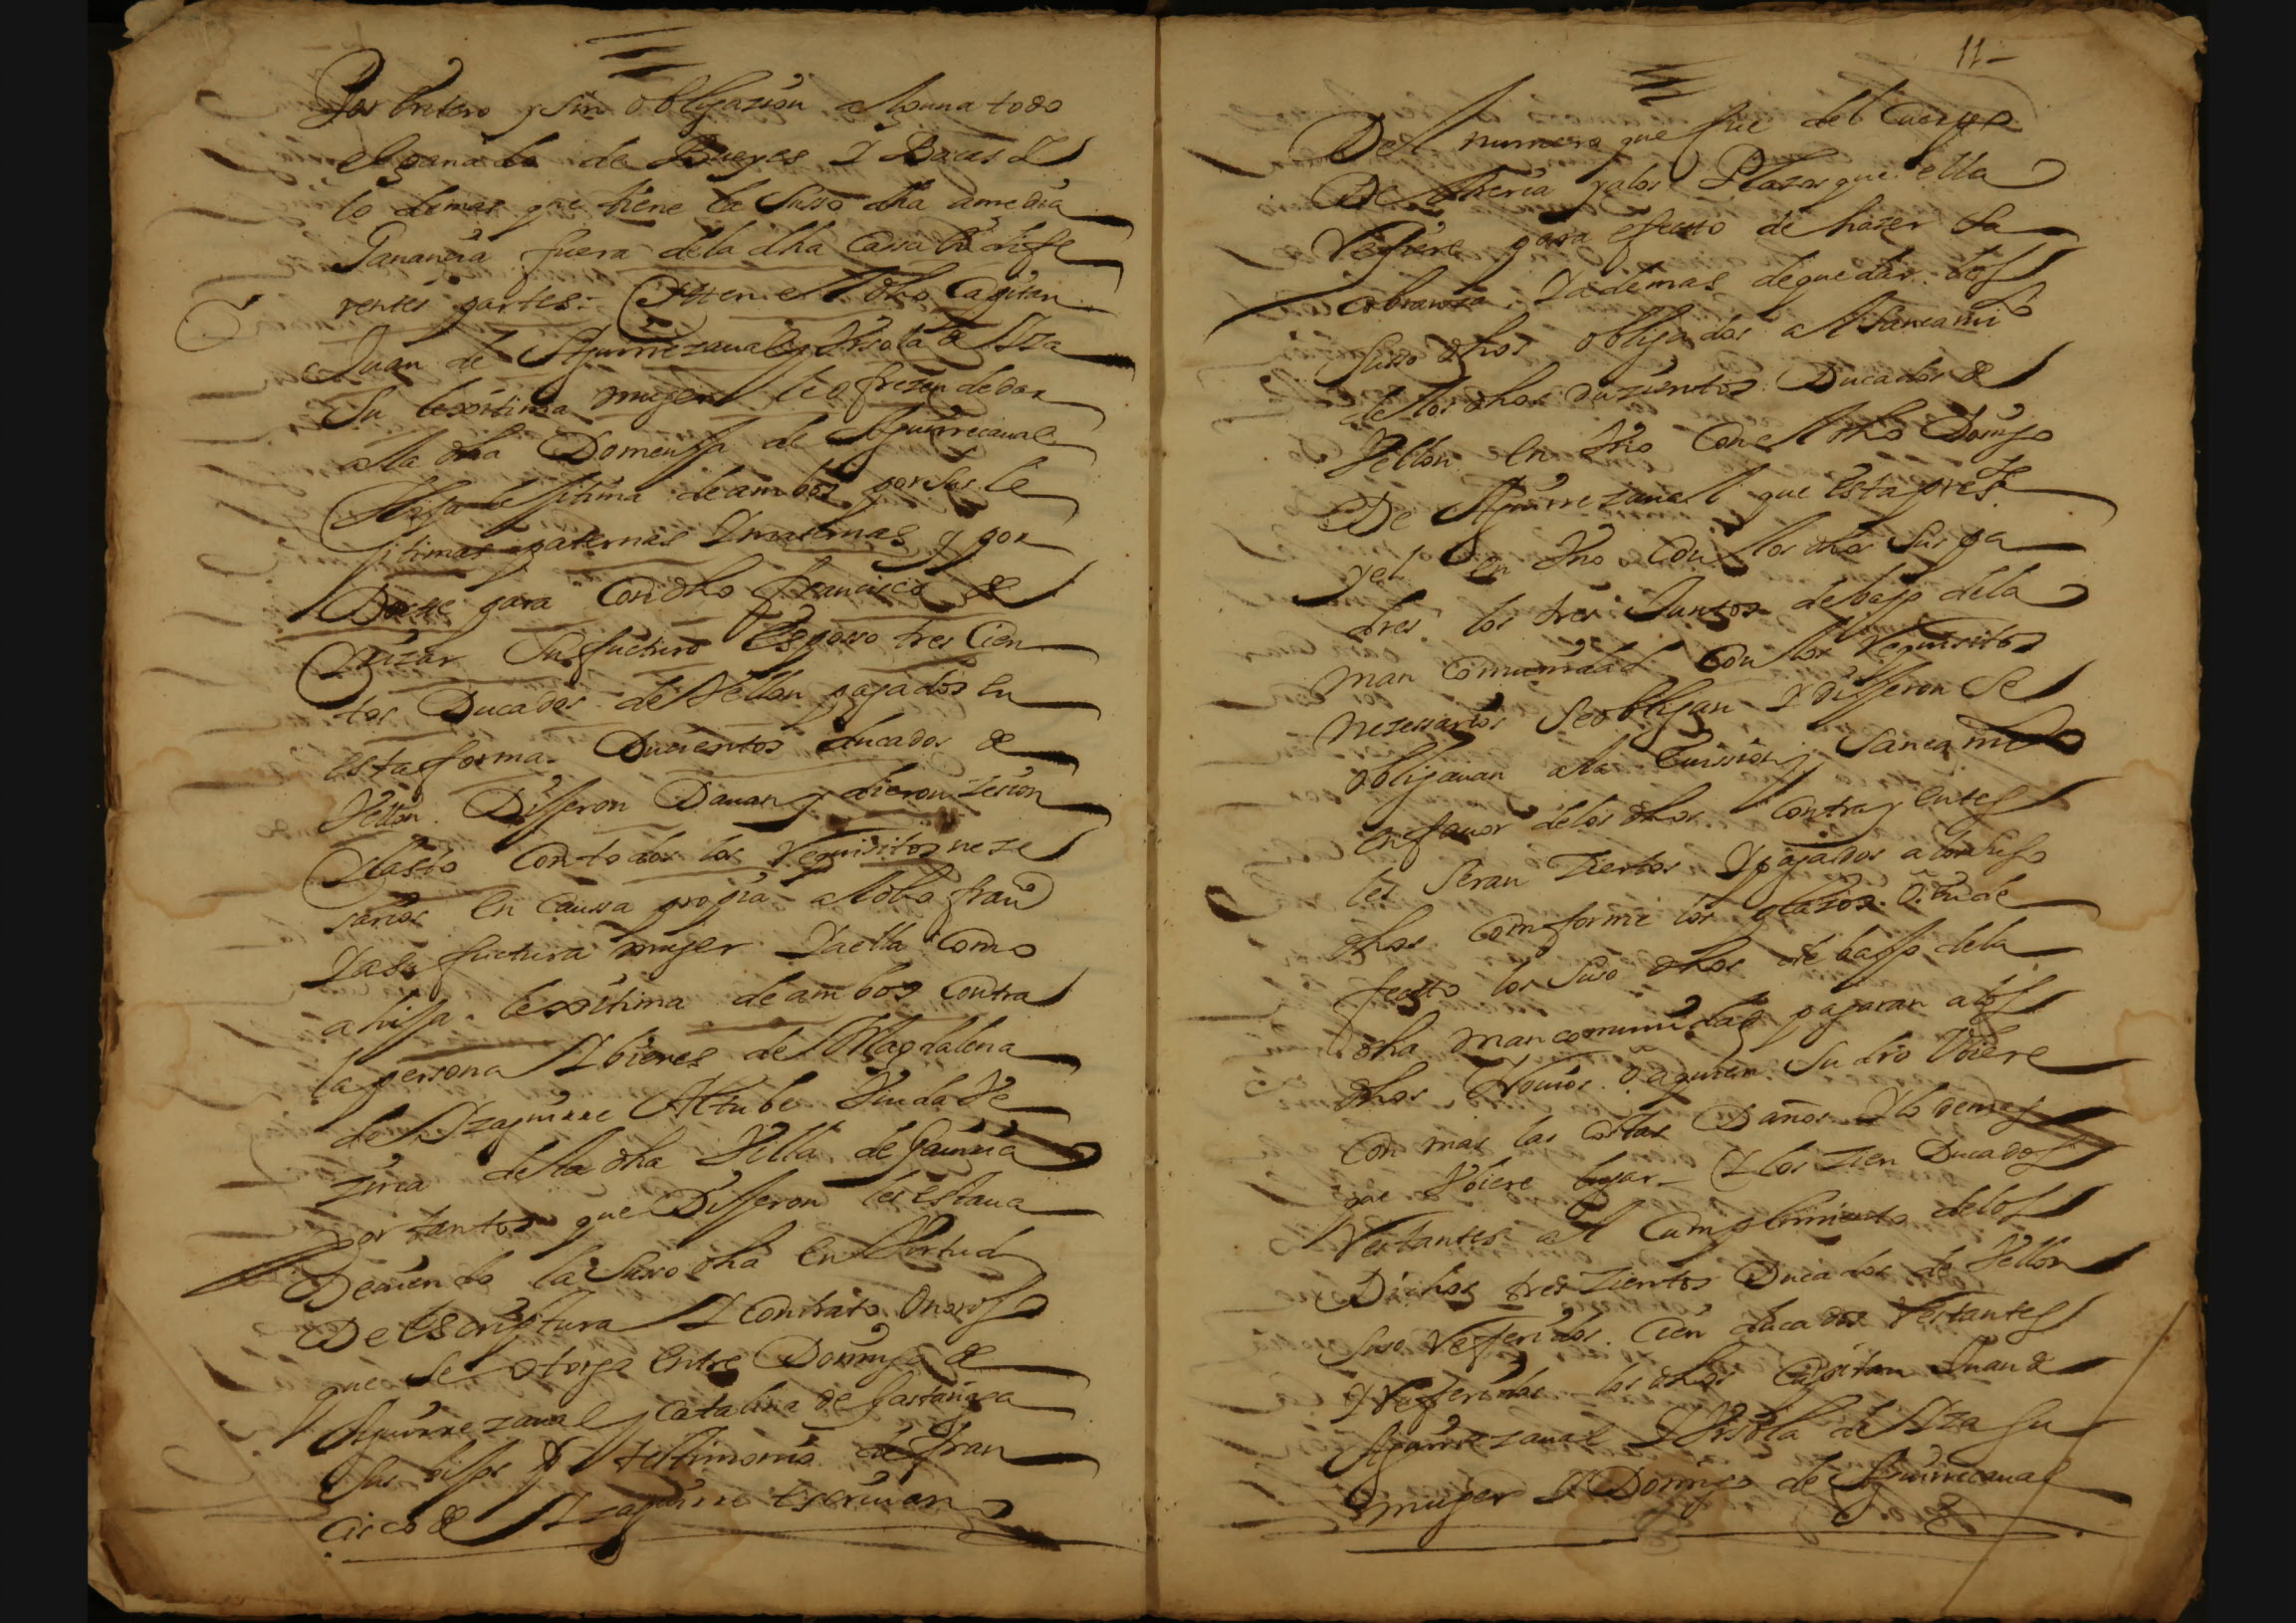 Por entero y sin obligazion alguna todo
el ganado de Bueyes Y Bacas Y
lo demas que tiene la suso dha a media
Ganancia fuera de la dha Cassa en dife
rentes partes. Yten el dho Capitan
Juan de Aguirrezaual y Ursola de Yza
su lexitima muger le ofrezen de dar
a la dha Domenja de Aguirrecaual
Hija lexitima de ambos por sus le
jitimas paternas Y maternas y por
Docte para Con dho francisco de
su fucturo Esposso tres Cien
tos Ducados de Vellon pagados en
esta forma. Ducientos ducados de
Vellon. Dijeron Dauan y dieron Zesion
Y lasto Con todos los Requisitos neze
sarios en Caussa propia al dho franco
Y a su fuctura muger Y a ella Como
a hija lexitima de ambos Contra
la persona Y bienes de Magdalena
de Yzaguirre Altube Viuda Ve
zina de la dha Villa de Gauiria
por tantos que Dijeron les estaua
Deuiendo la suso dha en Virtud
De escriptura Y contrato Onoroso
que se otorgo entre Domingo de
Aguirrezaual y Catalina de Gastañaga
sus hijos Por testimonio de Fran
cisco de Yzaguirre escriuano
11
Del numero que fue del Cuerpo
De y a los Plazos que ella
Refiere para efecto de hazer la
cobranza. Y a demas de quedar los
suso dhos obligados al saneami
de los dhos duzientos Ducados de
Vellon en Vno Con el dho Domingo
De Aguirrezaual que esta preste
y el en Vno Con los dhos sus pa
dres los tres Juntos debajo de la
man Comunidad Con los Requisitos
nezessarios se obligan Y dijeron se
obligauan a la Euission y saneamto
en fauor de los dhos Contrayentes
les seran Ziertos Y pagados a los suso
dhos Comforme los plazos. O en de
fecto los suso dhos debajo de la
dha mancomunidad pagaran a los
dhos Nouios. O a quien su dro Vbiere
Con mas las Costas Daños Y lo demas
que Vbiere lugar. Y los Zien Ducados
Restantes al Cumplimiento de los
Dichos tres Zientos Ducados de Vellon
suso Referidos. Cien ducados Restantes
Y Referidos los dhos Capitan Juan de
Aguirrezaual Y Ursola de Yza su
muger Y Domingo de Aguirrecaual